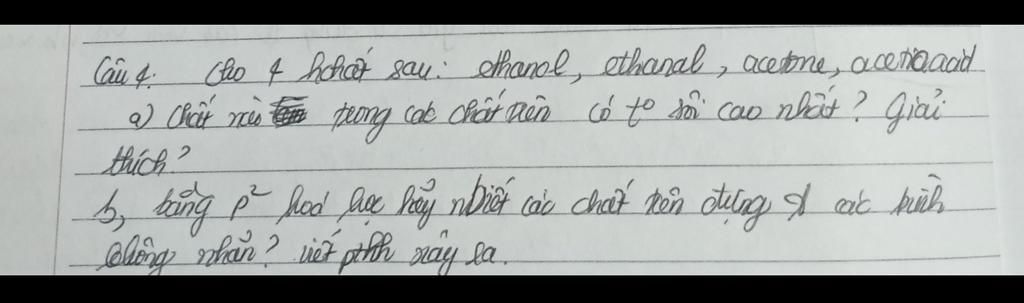 Câu 4. Cho 4 hchất sau: ethanol, ethanal, acetone, acetic acid
a) Chất nào trong các chất trên có t° sôi cao nhất? Giải
thích?
b, bằng p² hoá học hãy nbiết các chất trên đựng ở các bình
không nhãn? viết pthh xảy ra.